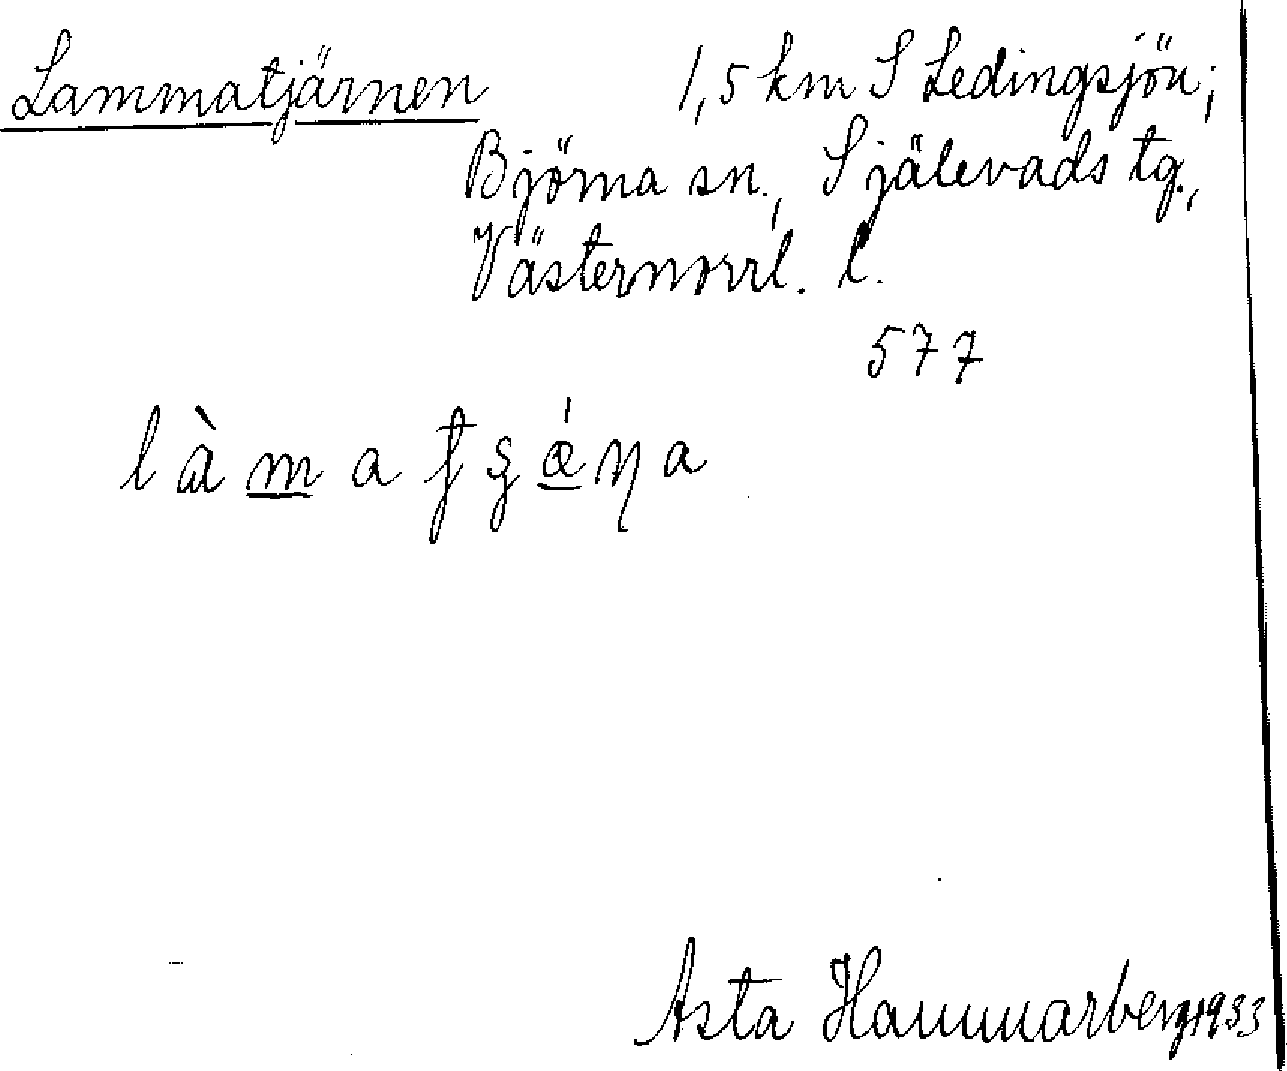 Lammatjärnen 1,5 km S Ledingsjön;
Björna sn., Själevads tg.,
Västernorrl. l.
577
Asta Hammarberg 1933